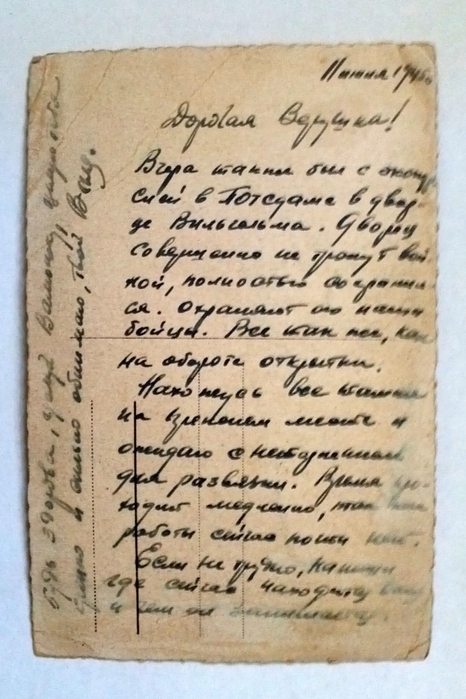 11 июня 1946
Дорогая Верушка!
Вчера
сией в Потсдаме в двор-
це Вильгельма. Дворец
совершенно не тронут вой-
ной, полностью сохранил-
ся. Охраняют его наши
бойцы. Все так же, как
на обороте открытки.
Нахожусь все
на прежнем месте и
ожидаю с нетерпением
дня развязки. Время про-
ходит медленно, так как
работы сейчас почти нет.
Если не трудно, напиши
где сейчас находится
и чем он занимается.
Будь здорова, целуй
крепко и сильно обнимаю, твой Влад.